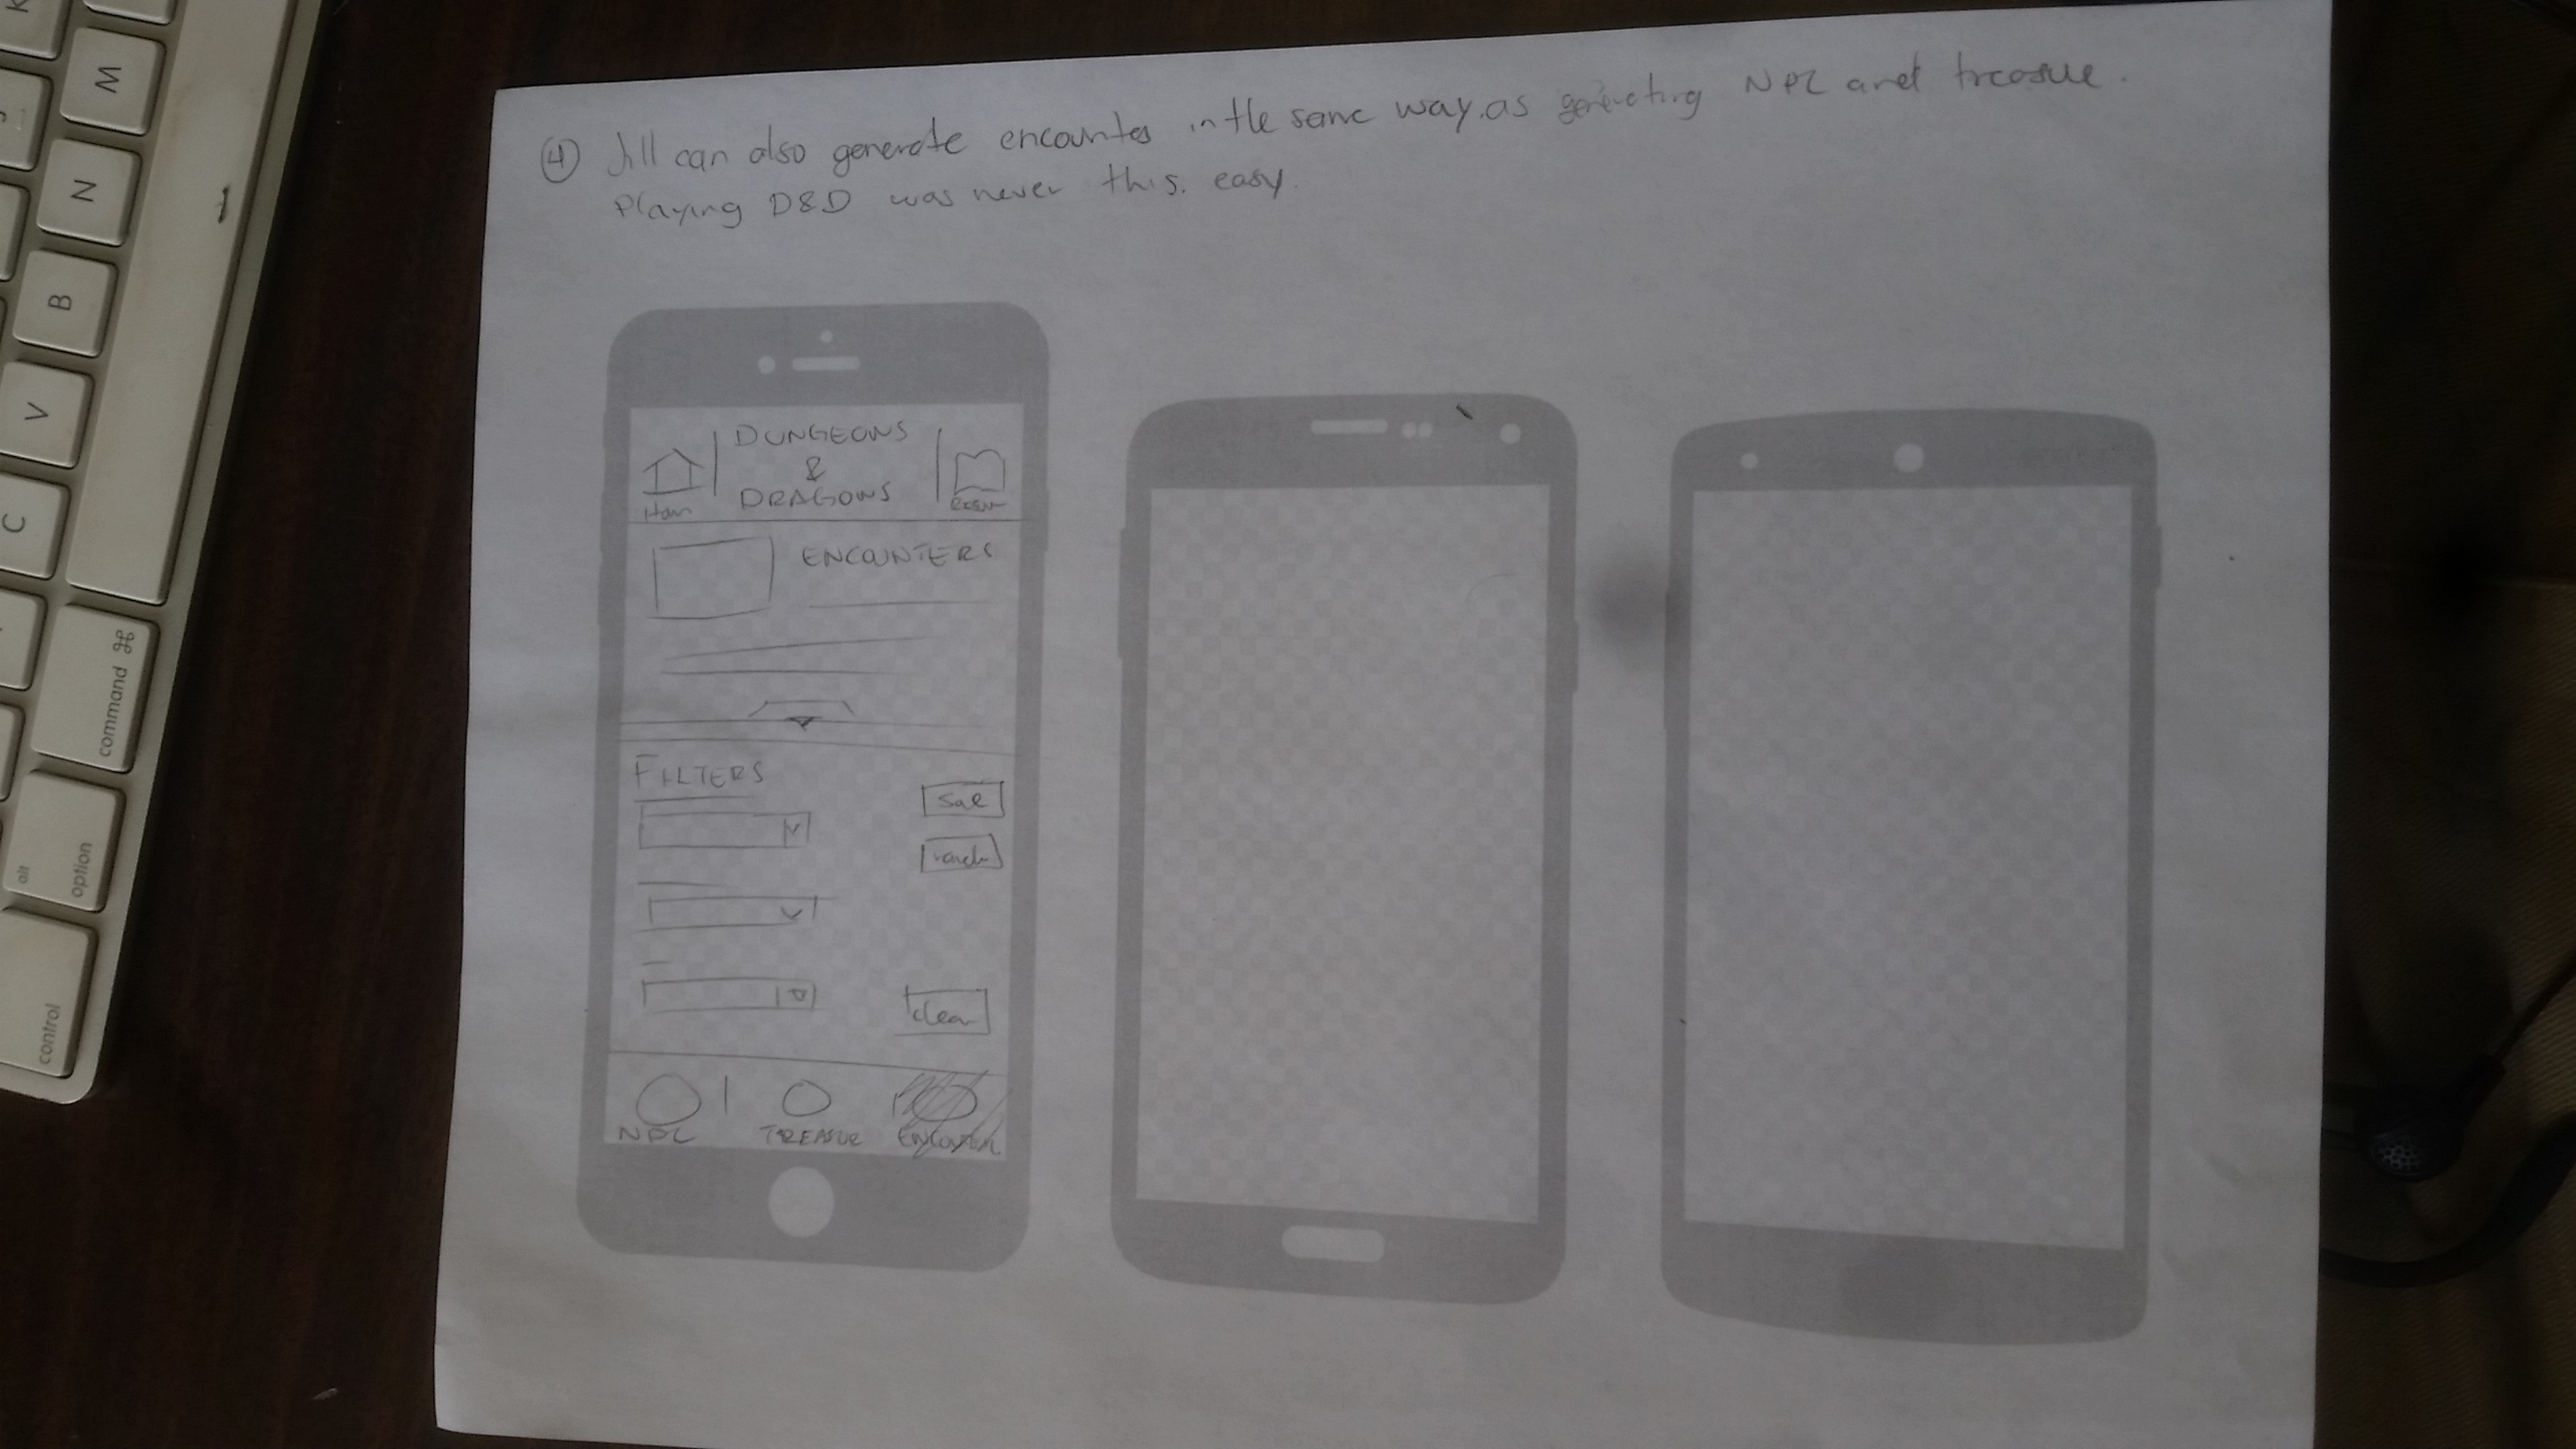 ④ Jill can also generate encounter in the same way as generating NPC and treasure.
Playing D&D was never this easy.
Home
DUNGEONS
&
DRAGONS
ENCOUNTERS
FILTERS
Save
clear
NPC
TREASUR
control
alt
option
command ⌘
C
V
B
N
M